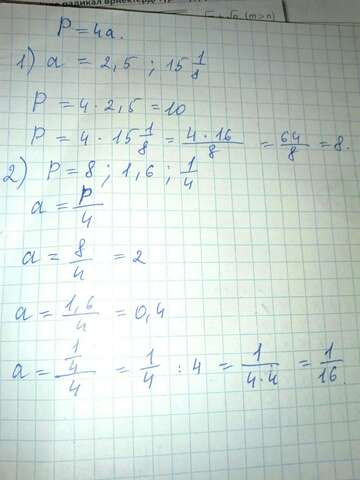 ные радикал өрнектерде
(m>n)
P = 4a.
1) a = 2,5 ; 15 1/8
P = 4 · 2,5 = 10
P = 4 · 15 1/8 = 4 · 16/8 = 64/8 = 8.
2) P = 8 ; 1,6 ; 1/4
a = P/4
a = 8/4 = 2
a = 1,6/4 = 0,4
a = 1/4/4 = 1/4 : 4 = 1/4·4 = 1/16